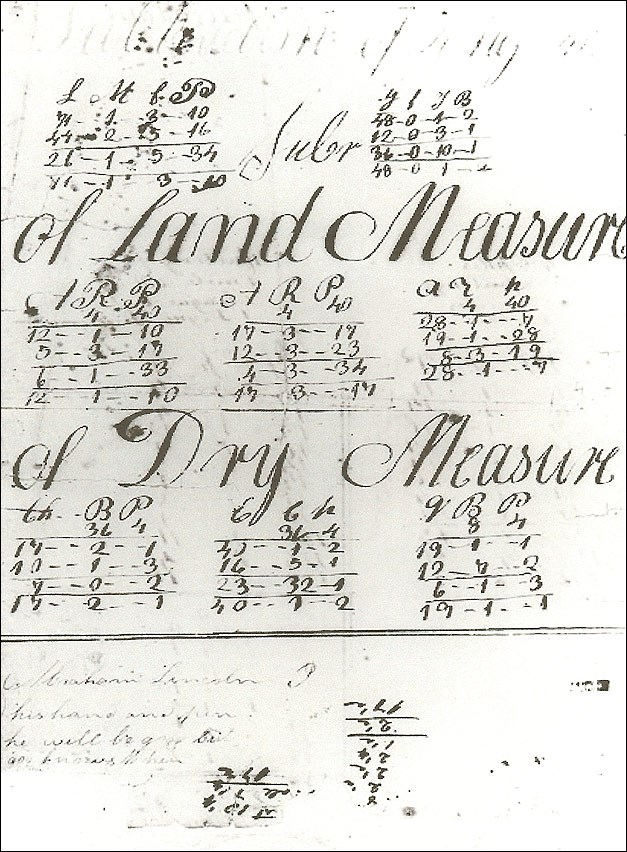 Subtraction of Long
L M f P
71 - 1 - 3 - 10
44 - 2 - 5 - 16
26 - 1 - 5 - 34
71 - 1 3 - 10
Subr
48 - 0 - 1 - 2
12 - 0 - 3 - 1
36 - 0 - 10 - 1
48 - 0 1 - 2
of Land Measure
A R P
4 40
12 - 1 - 10
5 - 3 - 17
6 - 1 - 33
12 - 1 - 10
A R P
4 40
17 - 3 - 17
12 - 3 - 23
4 - 3 - 34
17 - 3 - 17
a r p
4 40
28 - 1 - 7
19 - 1 - 28
8 - 3 - 19
28 - 1 - 7
of Dry Measure
Ch B P
36 4
17 - 2 - 1
10 - 1 - 3
7 - 0 - 2
17 - 2 - 1
36 - 4
40 - 1 - 2
16 - 5 - 1
23 - 32 - 1
40 - 1 - 2
q B P
8 4
19 - 1 - 1
12 - 7 - 2
6 - 1 - 3
19 - 1 - 1
Abraham Lincoln
his hand and pen
he will be good but
god knows When